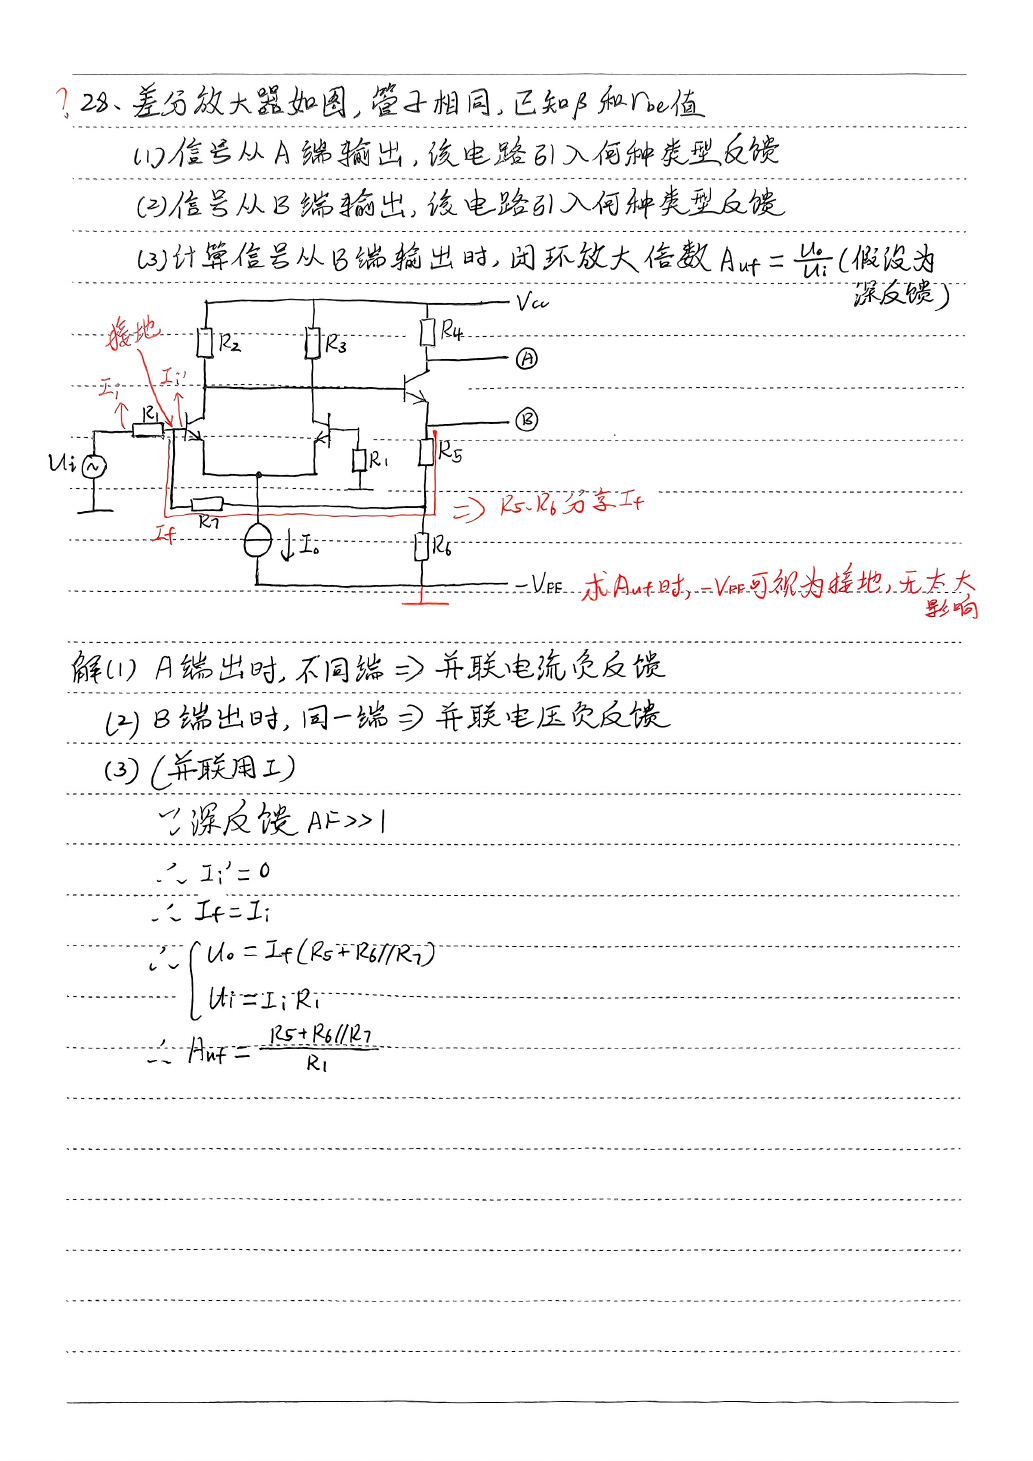 ? 28、差分放大器如图,管子相同,已知β和rbe值
(1)信号从A端输出,该电路引入何种类型反馈
(2)信号从B端输出,该电路引入何种类型反馈
(3)计算信号从B端输出时,闭环放大倍数Auf=Uo/Ui(假设为
深反馈)
Vcc
接地
R2
R3
R4
A
Ii
Ii'
R1
B
Ui
R1
R5
R7
If
⇒ R5、R6分享If
Io
R6
-VEE
求Auf时,-VEE可视为接地,无太大
影响
解(1) A端出时,不同端⇒并联电流负反馈
(2) B端出时,同一端⇒并联电压负反馈
(3) (并联用I)
∵深反馈 AF>>1
∴ Ii'=0
∴ If=Ii
∴ { Uo=If(R5+R6//R7)
Ui=IiR1
∴ Auf= R5+R6//R7 / R1